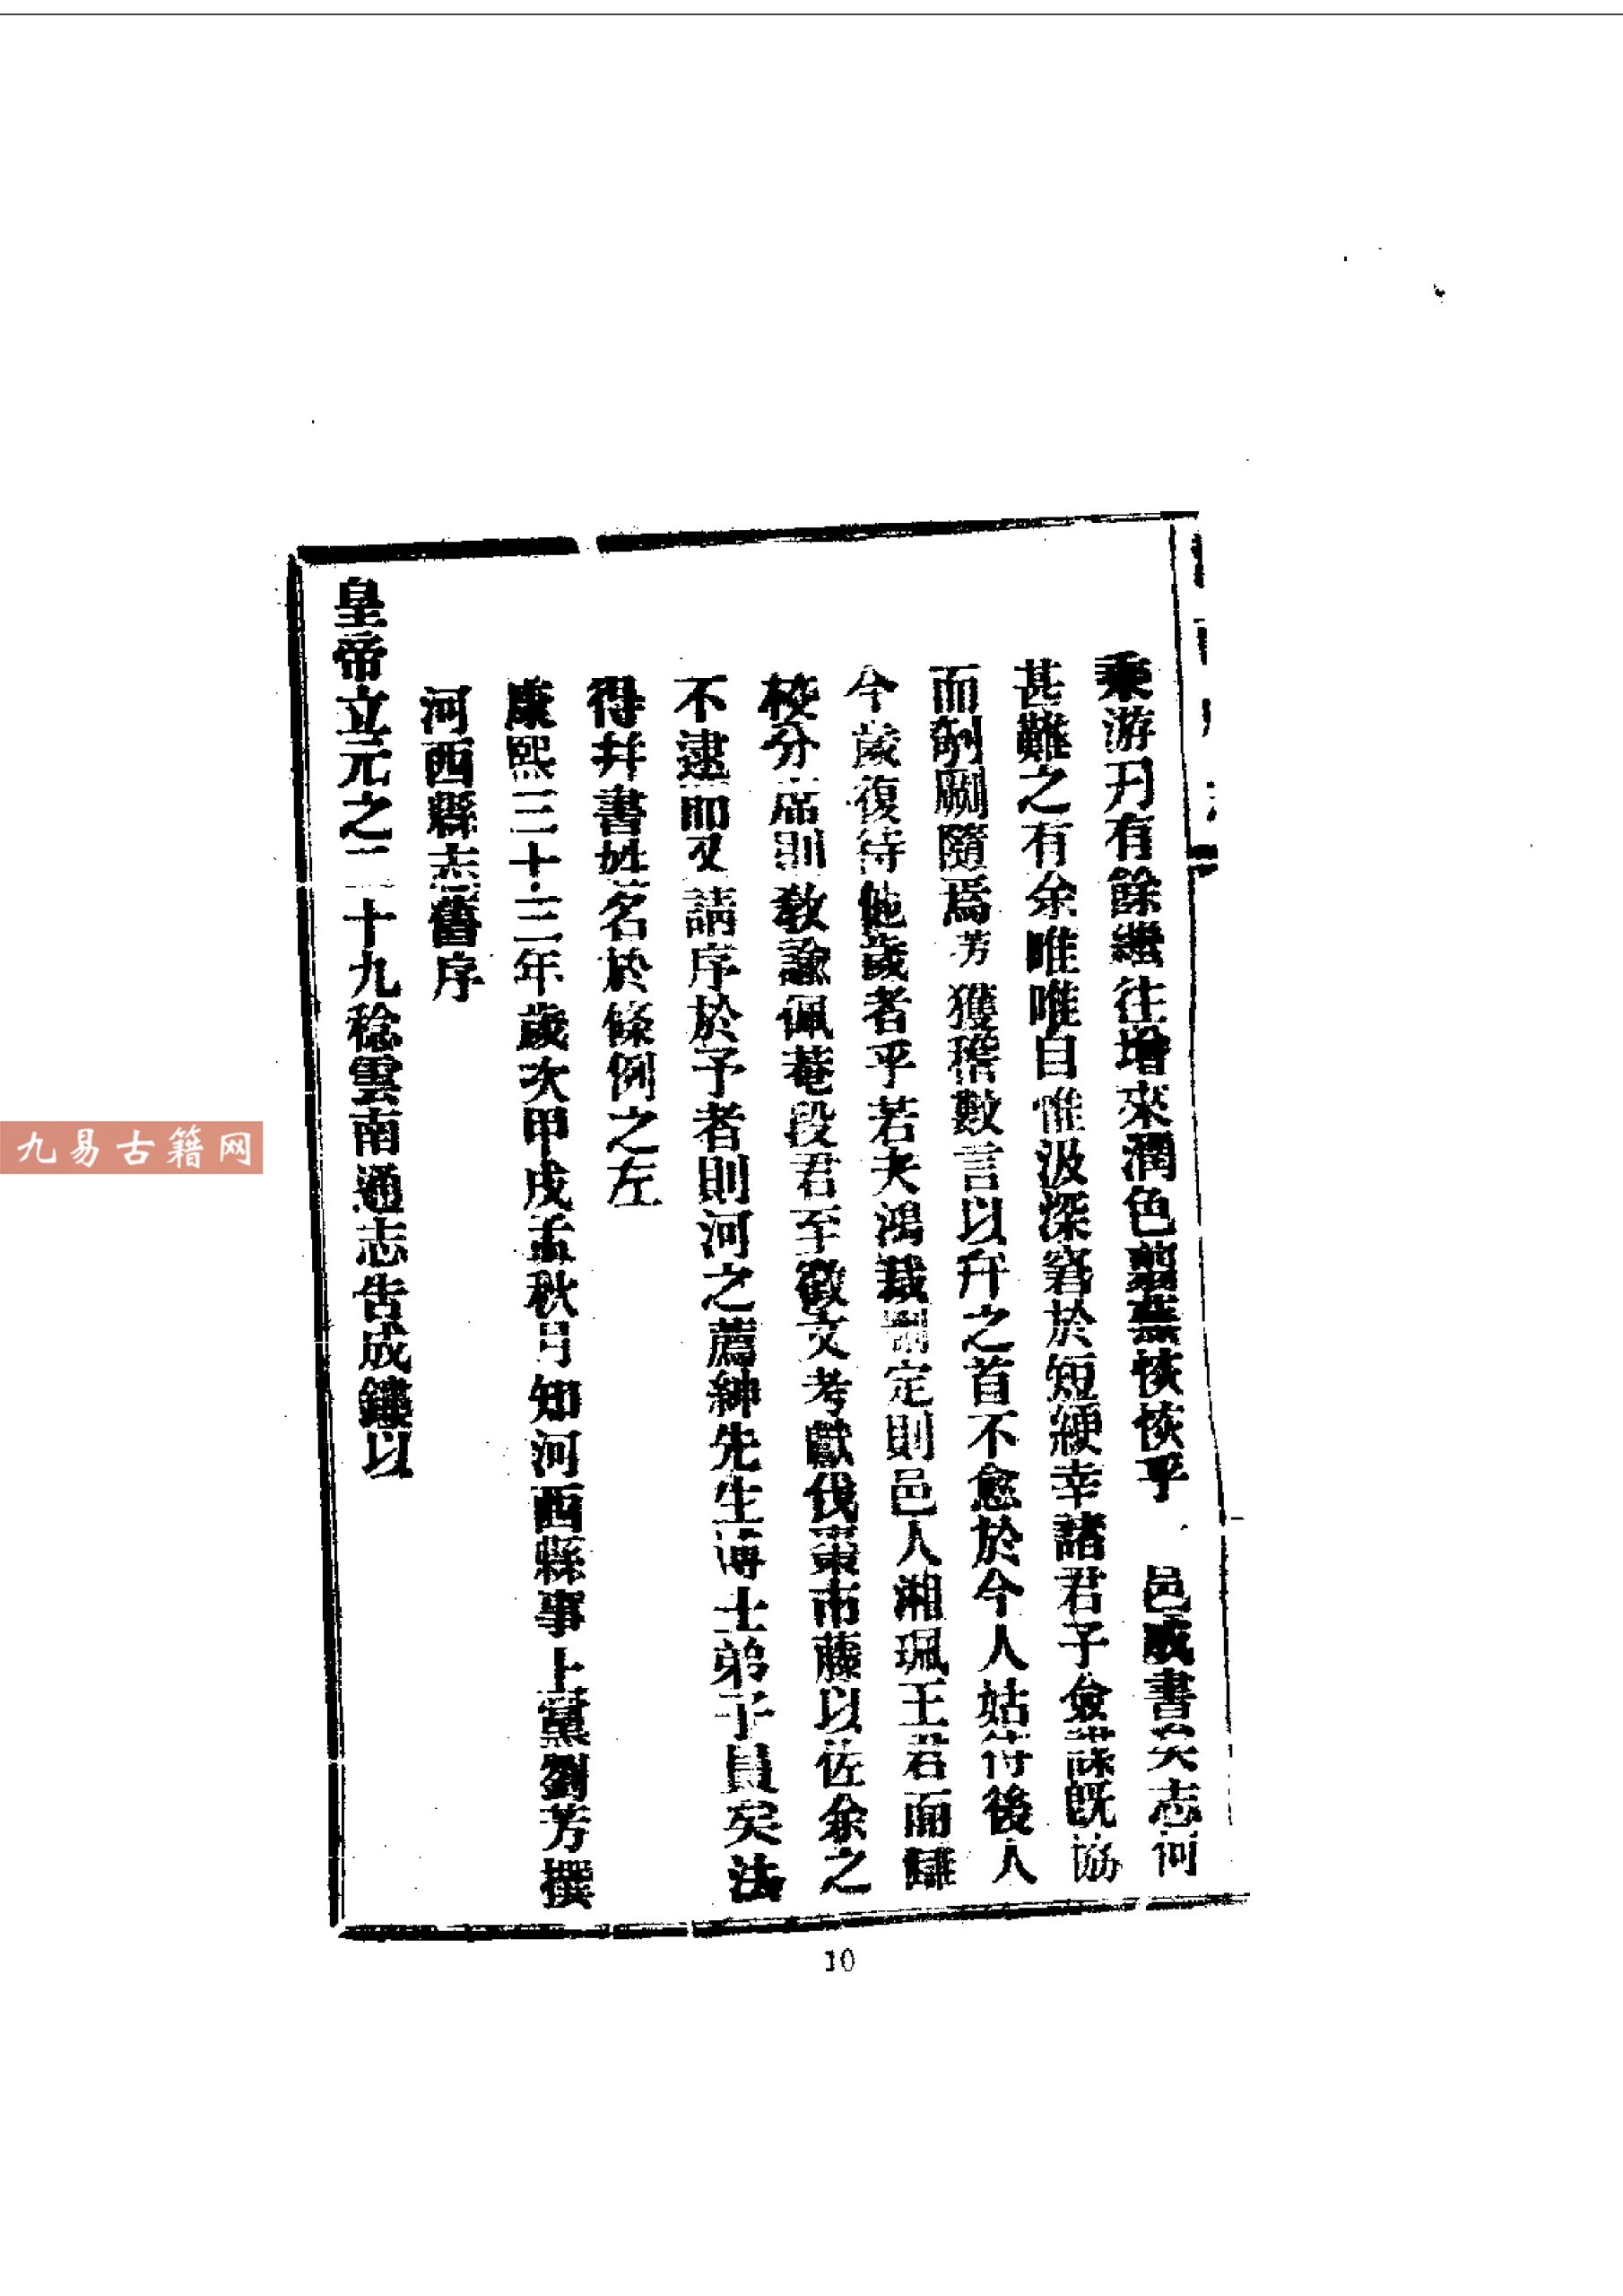 乘游刃有餘繼往增來潤色翦蕪恢恢乎邑成書矣志何
甚難之有余唯唯自惟汲深窘於短綆幸諸君子僉謀既協
而剞劂隨焉芳獲稽數言以弁之首不愈於今人姑待後人
今歲復待他歲者乎若夫鴻裁定則邑人湘珮王君而
校分席則教諭佩菴段君至徵文考獻伐棗市藤以佐余之
不逮而又請序於予者則河之薦紳先生博士弟子員矣法
得并書姓名於條例之左
康熙三十三年歲次甲戌孟秋月知河西縣事上黨劉芳撰
河西縣志舊序
皇帝立元之二十九稔雲南通志告成鏤以
10
九易古籍网